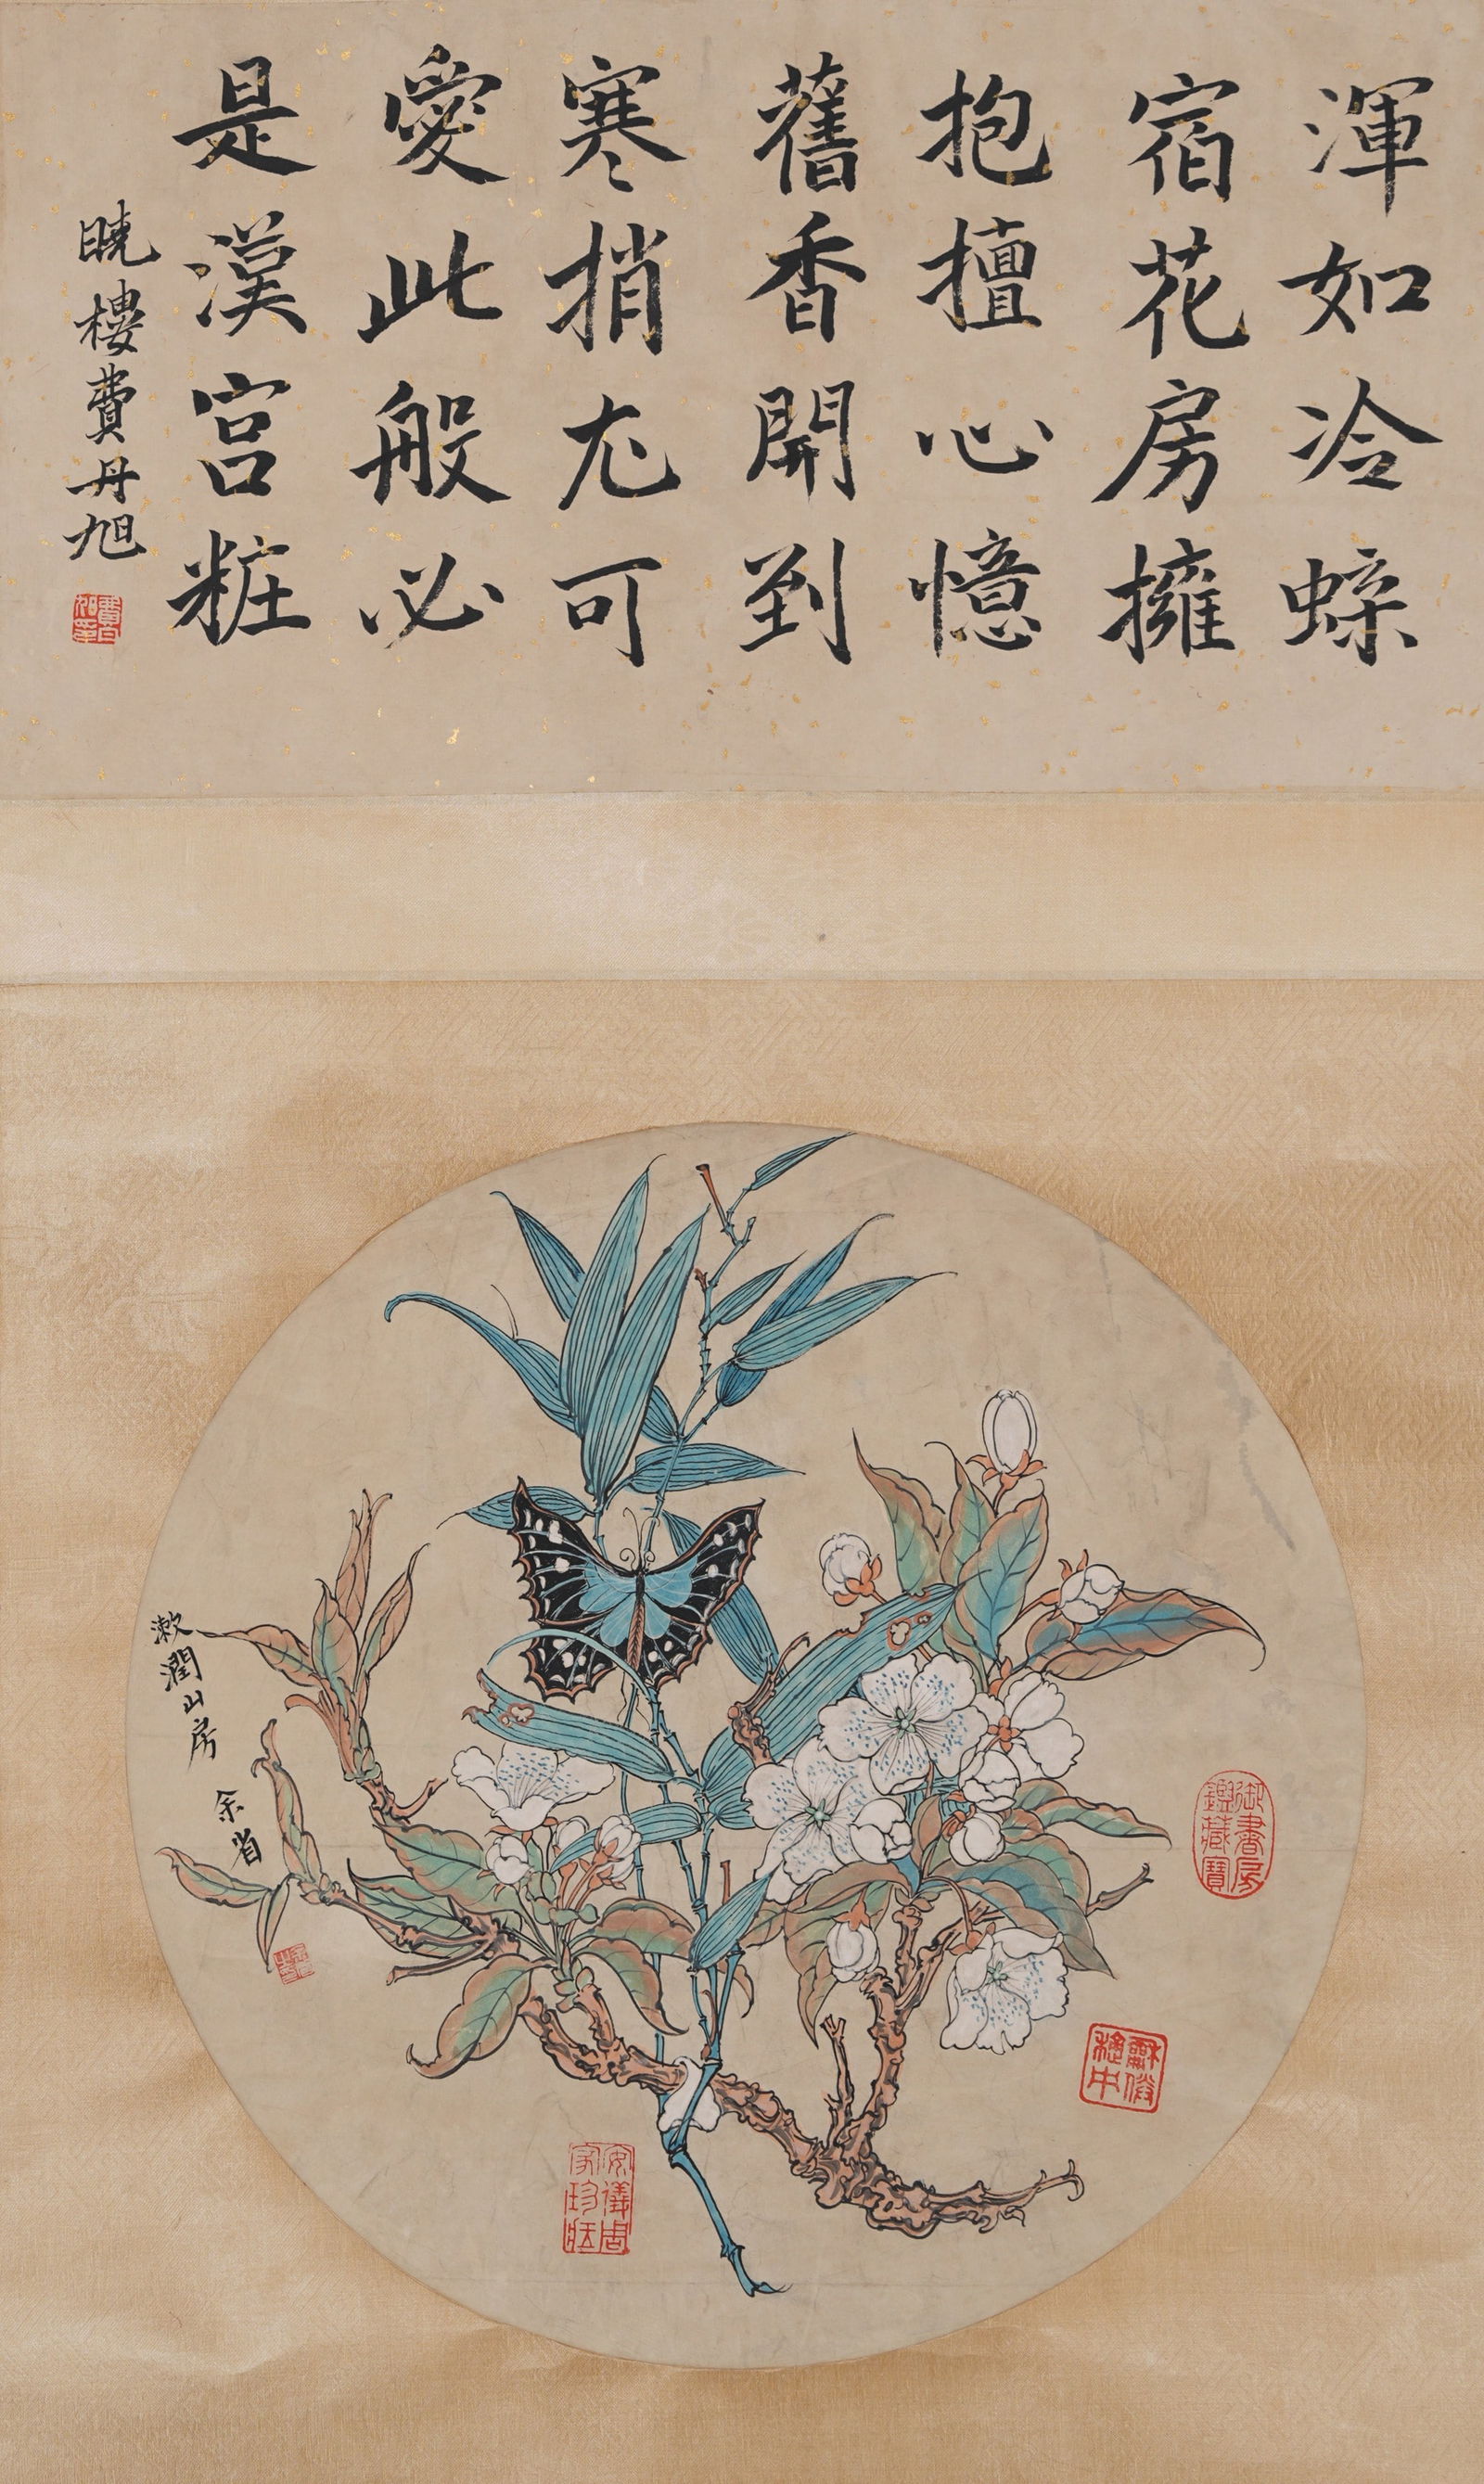 渾如冷蝶
宿花房擁
抱擅心憶
舊香開到
寒捎尤可
愛此般必
是漢宮粧
曉樓費丹旭
漱潤山房
余省
御書房鑑藏寶
安儀周家珍藏